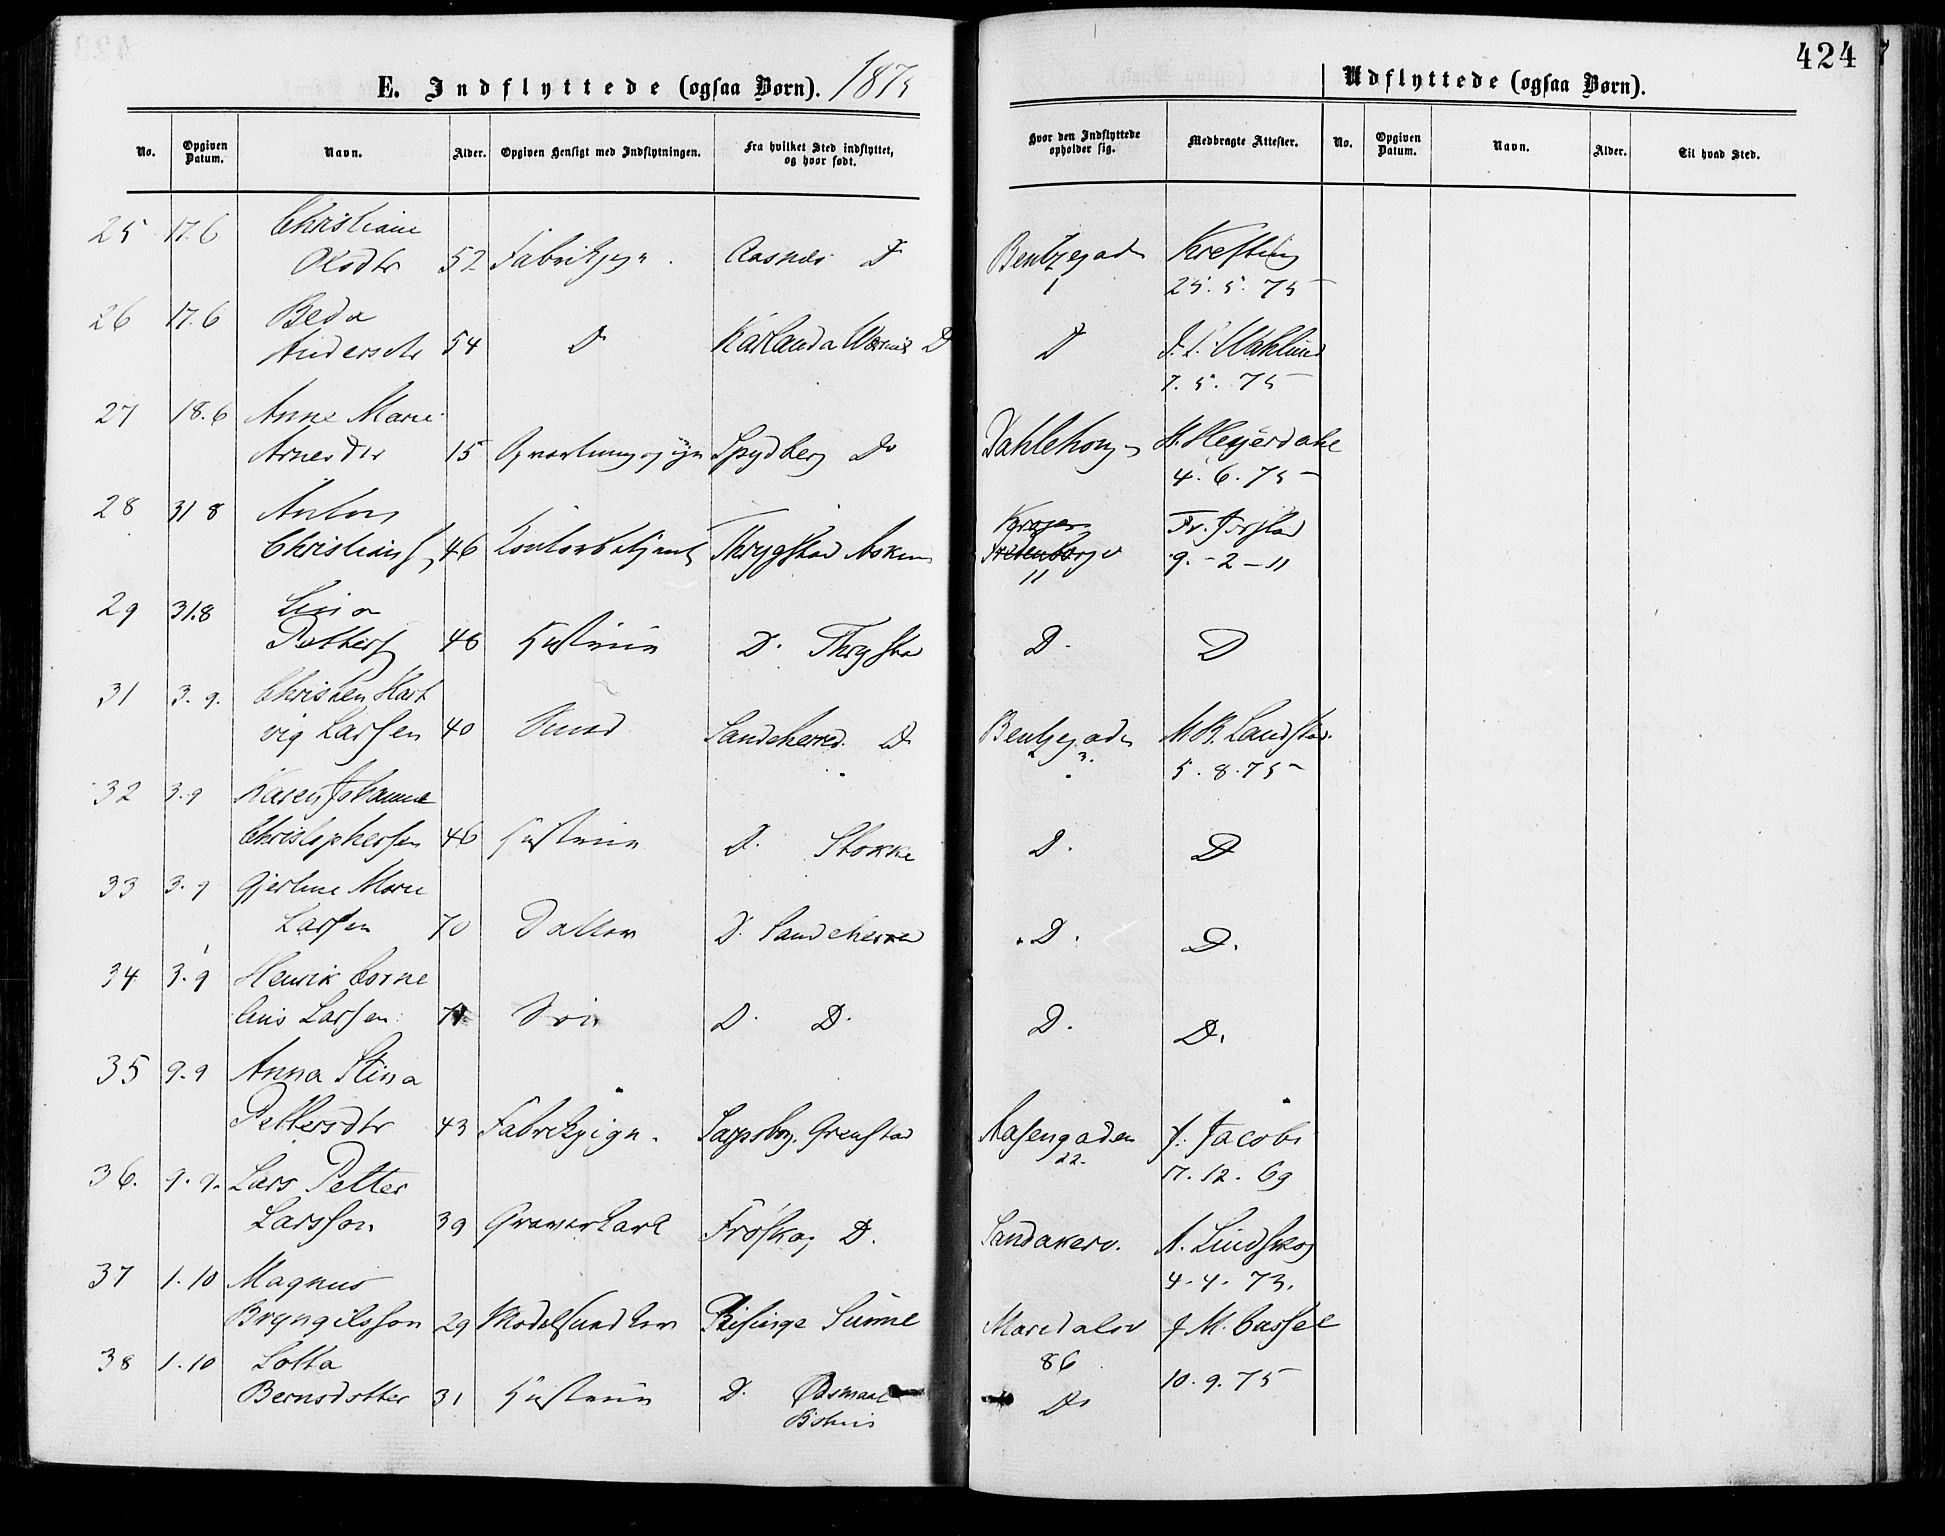 424
E. Indflyttede (ogsaa Børn). 1875
Udflyttede (ogsaa Børn).
No. Opgiven Datum. Navn. Alder. Opgiven Hensigt med Indflytningen. Fra hvilket Sted indflyttet, og hvor født. Hvor den Indflyttede opholder sig. Medbragte Attester. No. Opgiven Datum. Navn. Alder. Til hvad Sted.
25 17.6 Christiane
Olsdtr 52 Aasnes D Bentzegade Krefting
1 25.5.75
26 17.6 Beda
Andersdtr 54 D Karlanda D D Wahlund
7.5.75
27 18.6 Anne Marie
Arnesdtr 15 Spydberg Do
4.6.75
28 31 8 Anton
Christians 46 Kontorbetjent Thrygstad Askim
11 9.-2-11
29 31.8 Lina
Petters 46 Hustru D. Thrygstad D. D
31 3.9. Christen Hart
vig Larsen 40 Sandeherred. D Bentzegade M B. Landstad
3. 5.8.75
32 3.9 Karen Johanne
Christophersen 46 Hustru D. Stokke D. D
33 3.9 Gjertine Marie
Larsen 70 Datter D. Sandeherred D. D.
34 3.9 Henrik Corne
lius Larsen. Søn D. D. D. D.
35 9.9 Anna Stina
Pettersdtr 43 Fabrikpige. Sarpsborg. Aasengaden J. Jacobi
22. 17.12.69
36. 9.9. Lars Petter
Larsson 39 Graverkarl Frøskog D. Sandakerv. A. Lindskog
4.4.73.
37 1.10 Magnus
Bryngilsson 29 Modelsnedker Sunne Maridalsv J M. Cassel
86
10.9.75
38 1.10 Lotta
Bernsdotter 31 Hustru D. Ødsmaal Do
Bohus